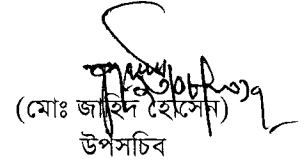 (মোঃ জাহিদ হোসেন)
উপসচিব